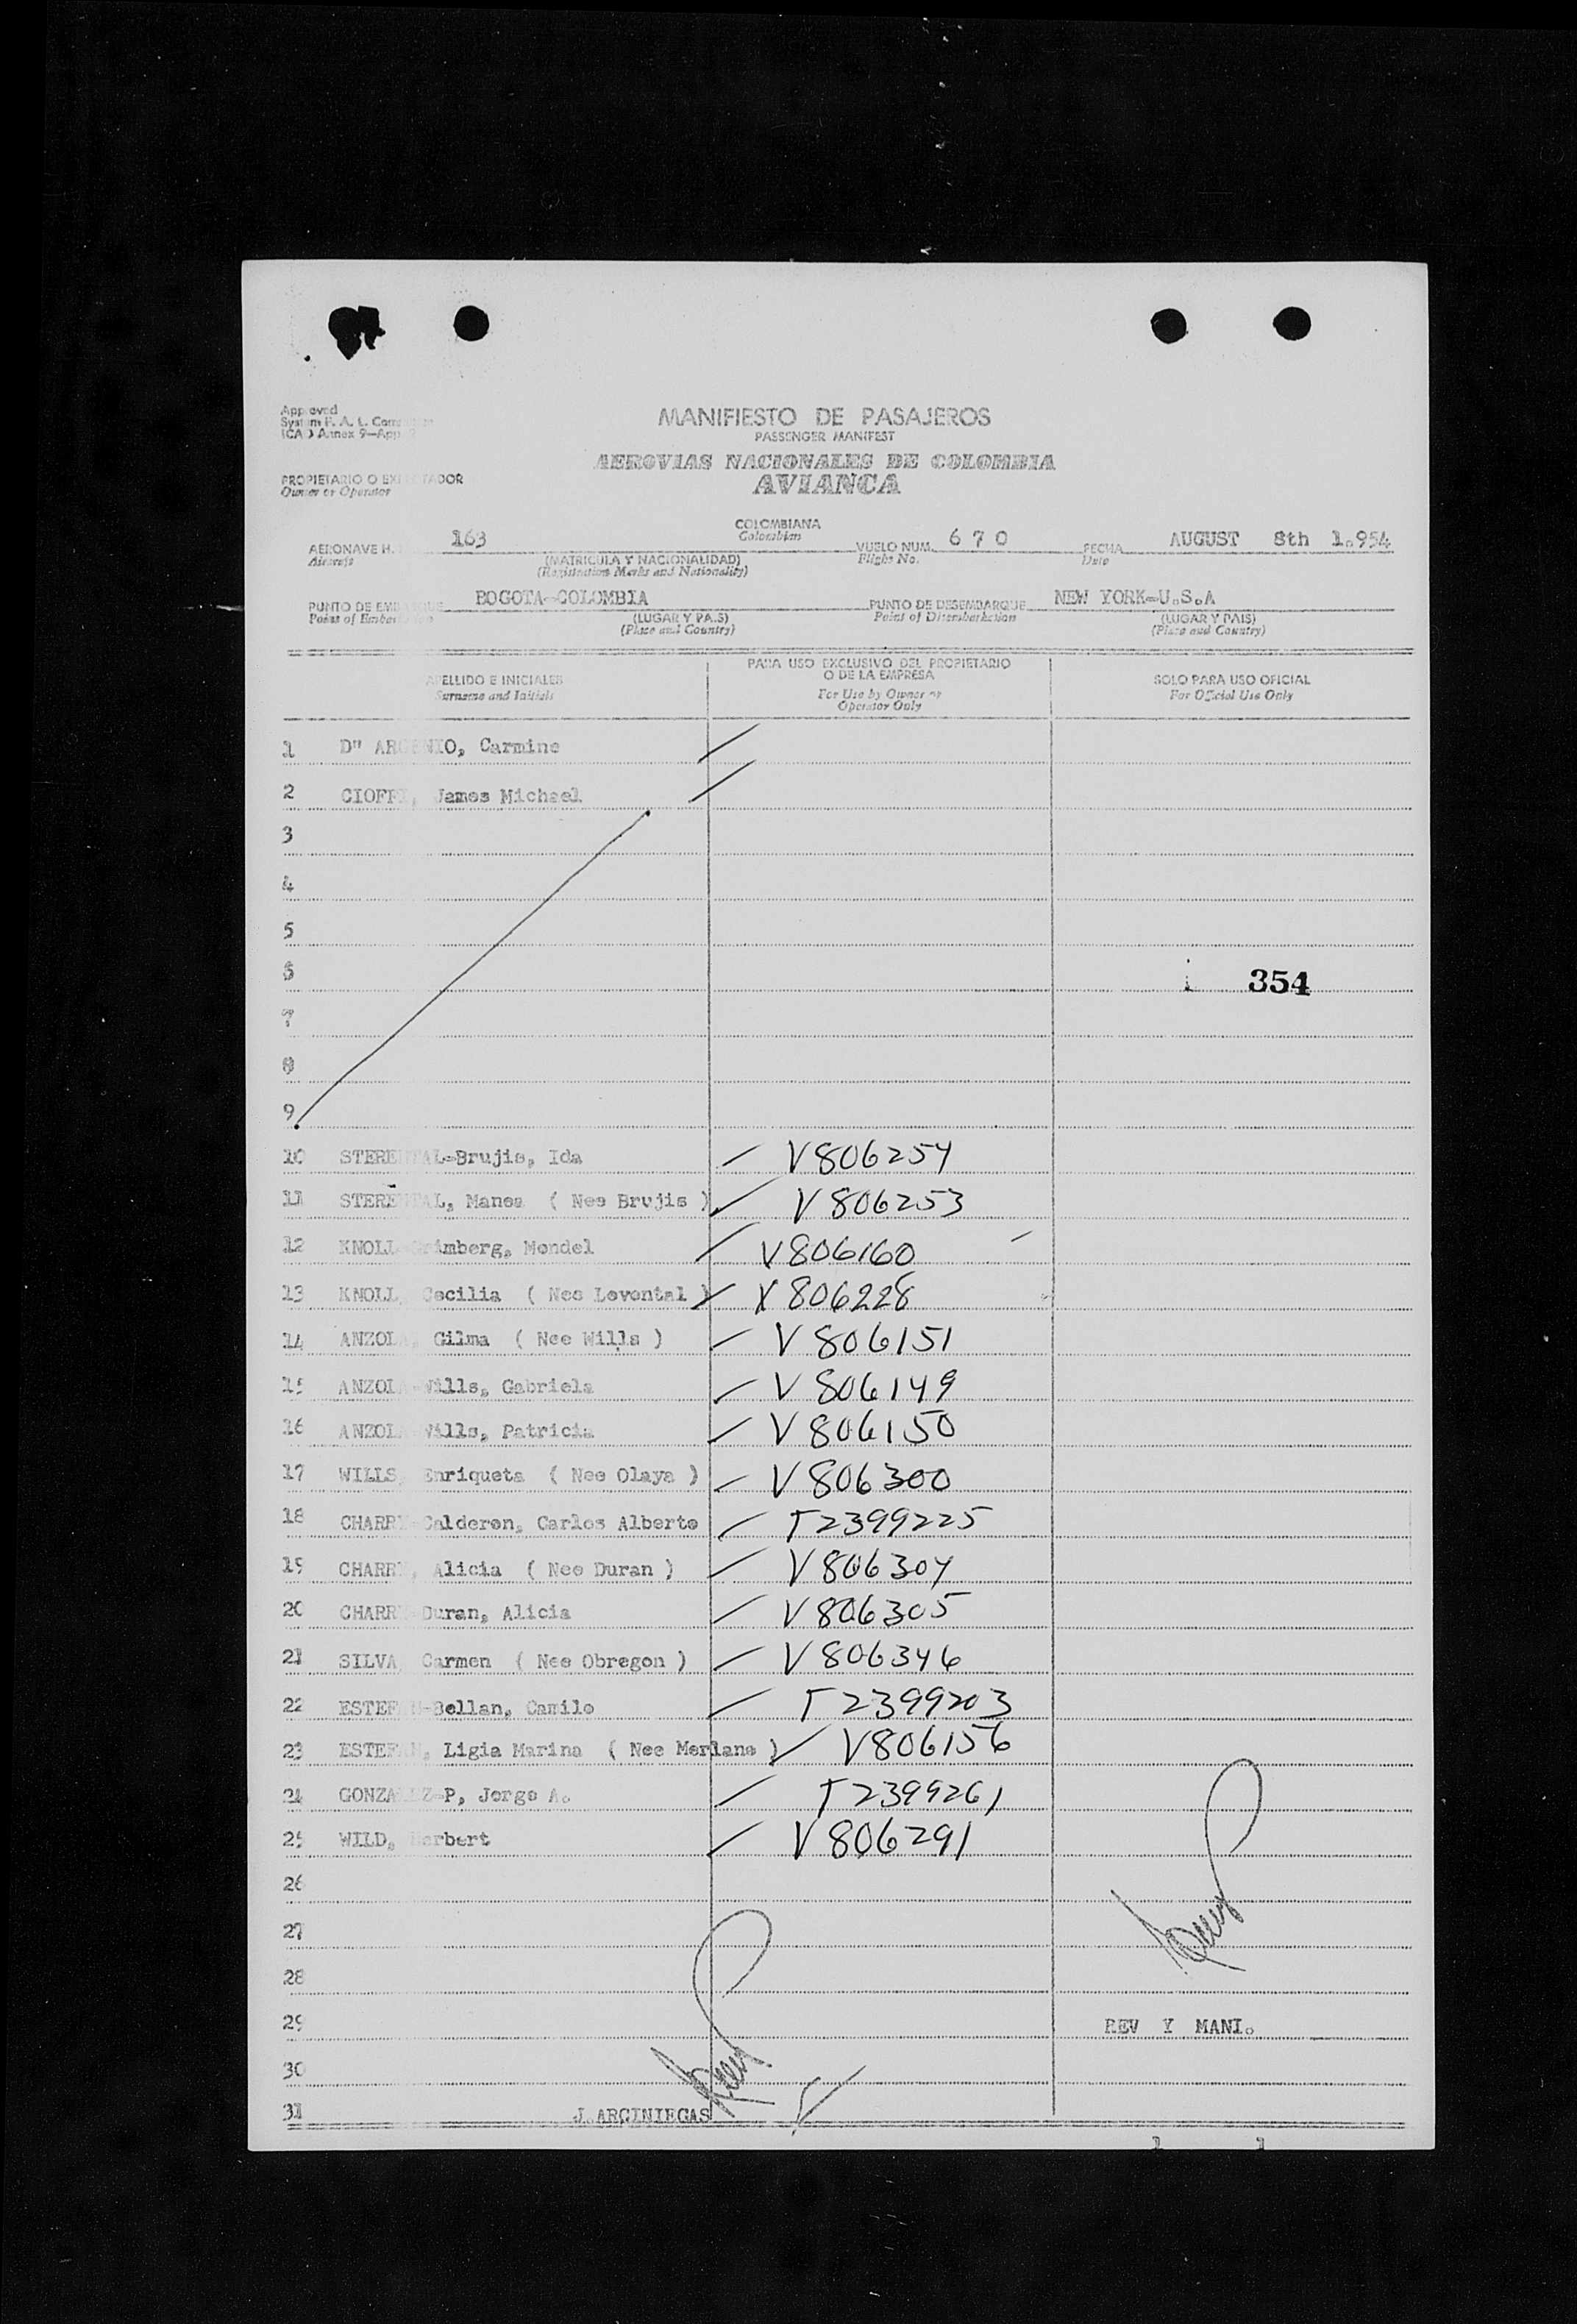 Approved
MANIFIESTO DE PASAJEROS
PASSENGER MANIFEST
AEROVIAS NACIONALES DE COLOMBIA
AVIANCA
PROPIETARIO O
Owner or Operator
COLOMBIANA
Colombian
AERONAVE H. 163 VUELO NUM. 6 7 0 FECHA AUGUST 8th 1.954
Aircraft (MATRICULA Y NACIONALIDAD) Flight No. Date
(Registration Marks and Nationality)
PUNTO DE BOGOTA-COLOMBIA PUNTO DE DESEMBARQUE NEW YORK-U.S.A
Point of (LUGAR Y PAIS) Point of Disembarkation (LUGAR Y PAIS)
(Place and Country) (Place and Country)
APELLIDO E INICIALES PARA USO EXCLUSIVO DEL PROPIETARIO SOLO PARA USO OFICIAL
Surname and Initials O DE LA EMPRESA For Official Use Only
For Use by Owner or
Operator Only
1 D" ARGENIO, Carmine
2 CIOFFI, James Michael
3
4
5
6 354
7
8
9
10 STERENTAL-Brujis, Ida V806254
11 STERENTAL, Manes ( Nee Brujis ) V806253
12 KNOLL Grimberg, Mendel V806160
13 KNOLL, Cecilia ( Nee Levental ) V806228
14 ANZOLA, Gilma ( Nee Wills ) V806151
15 ANZOLA-Wills, Gabriela V806149
16 ANZOLA Wills, Patricia V806150
17 WILLS, Enriqueta ( Nee Olaya ) V806300
18 CHARRY-Calderon, Carlos Alberto T2399225
19 CHARRY, Alicia ( Nee Duran ) V806304
20 CHARRY-Duran, Alicia V806305
21 SILVA, Carmen ( Nee Obregon ) V806346
22 ESTEFAN-Bellan, Camilo T2399203
23 ESTEFAN, Ligia Marina ( Nee Merlano ) V806156
24 GONZALEZ-P, Jorge A. T2399261
25 WILD, Herbert V806291
26
27
28
29 REV Y MANI.
30
31 J. ARCINIEGAS